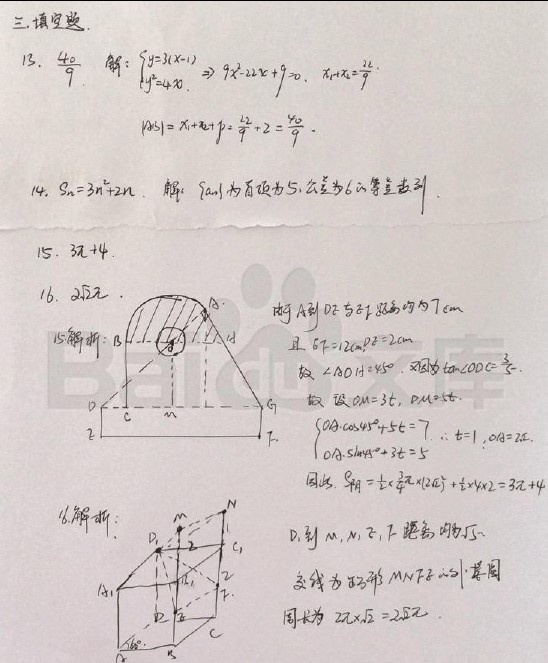 三.填空题.
13. 40/9 解: {y=3(x-1) y²=4x ⇒ 9x²-22x+9=0. x₁+x₂=22/9
|AB|=x₁+x₂+p=22/9+2=40/9.
14. Sn=3n²+2n. 解: {an}为首项为5,公差为6的等差数列.
15. 3π+4.
16. 2√2π.
15解析:
A
B
H
D
C
M
G
E
F.
由于A到DE与EF距离均为7cm
且EF=12cm,DE=2cm
故∠AOH=45°.又因为tan∠ODC=3/5.
故设OM=3t, DM=5t.
{OA·cos45°+5t=7
OA·sin45°+3t=5 ∴t=1, OA=2√2.
因此 S阴=1/2×3/4π×(2√2)²+1/2×4×2=3π+4
16.解析:
N
M
D₁
2
1
C₁
A₁
B₁
2
F.
D
E
C
60°
A
B
D₁到M,N,E,F距离均为√5.
交线为正方形MNFE的外接圆
周长为2π×√2=2√2π.
Bai 文库